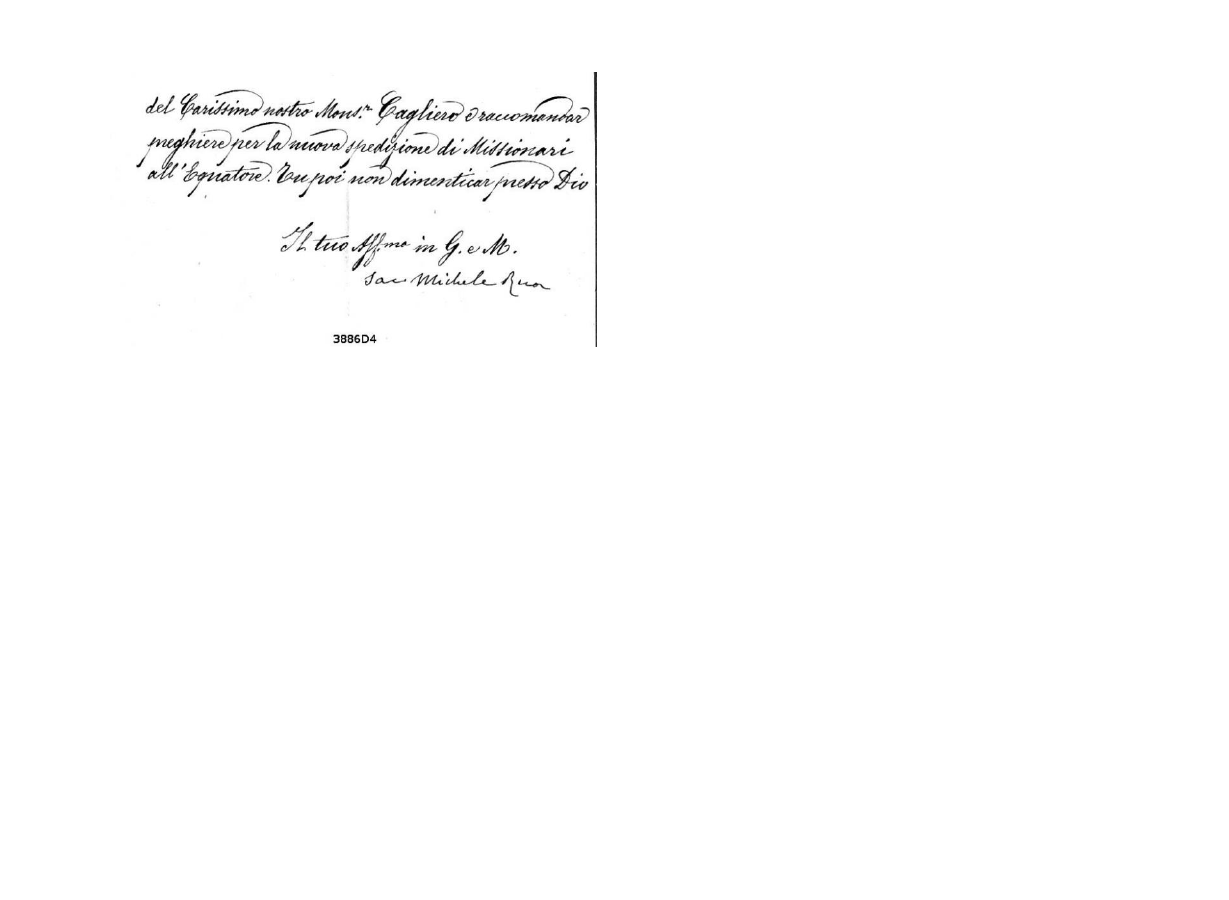 del Carissimo nostro Mons.r Cagliero e raccomandar
preghiere per la nuova spedizione di Missionari
all'Equatore. Tu poi non dimenticar presso Dio
Il tuo Aff.mo in G. e M.
Sac Michele Rua
3886D4